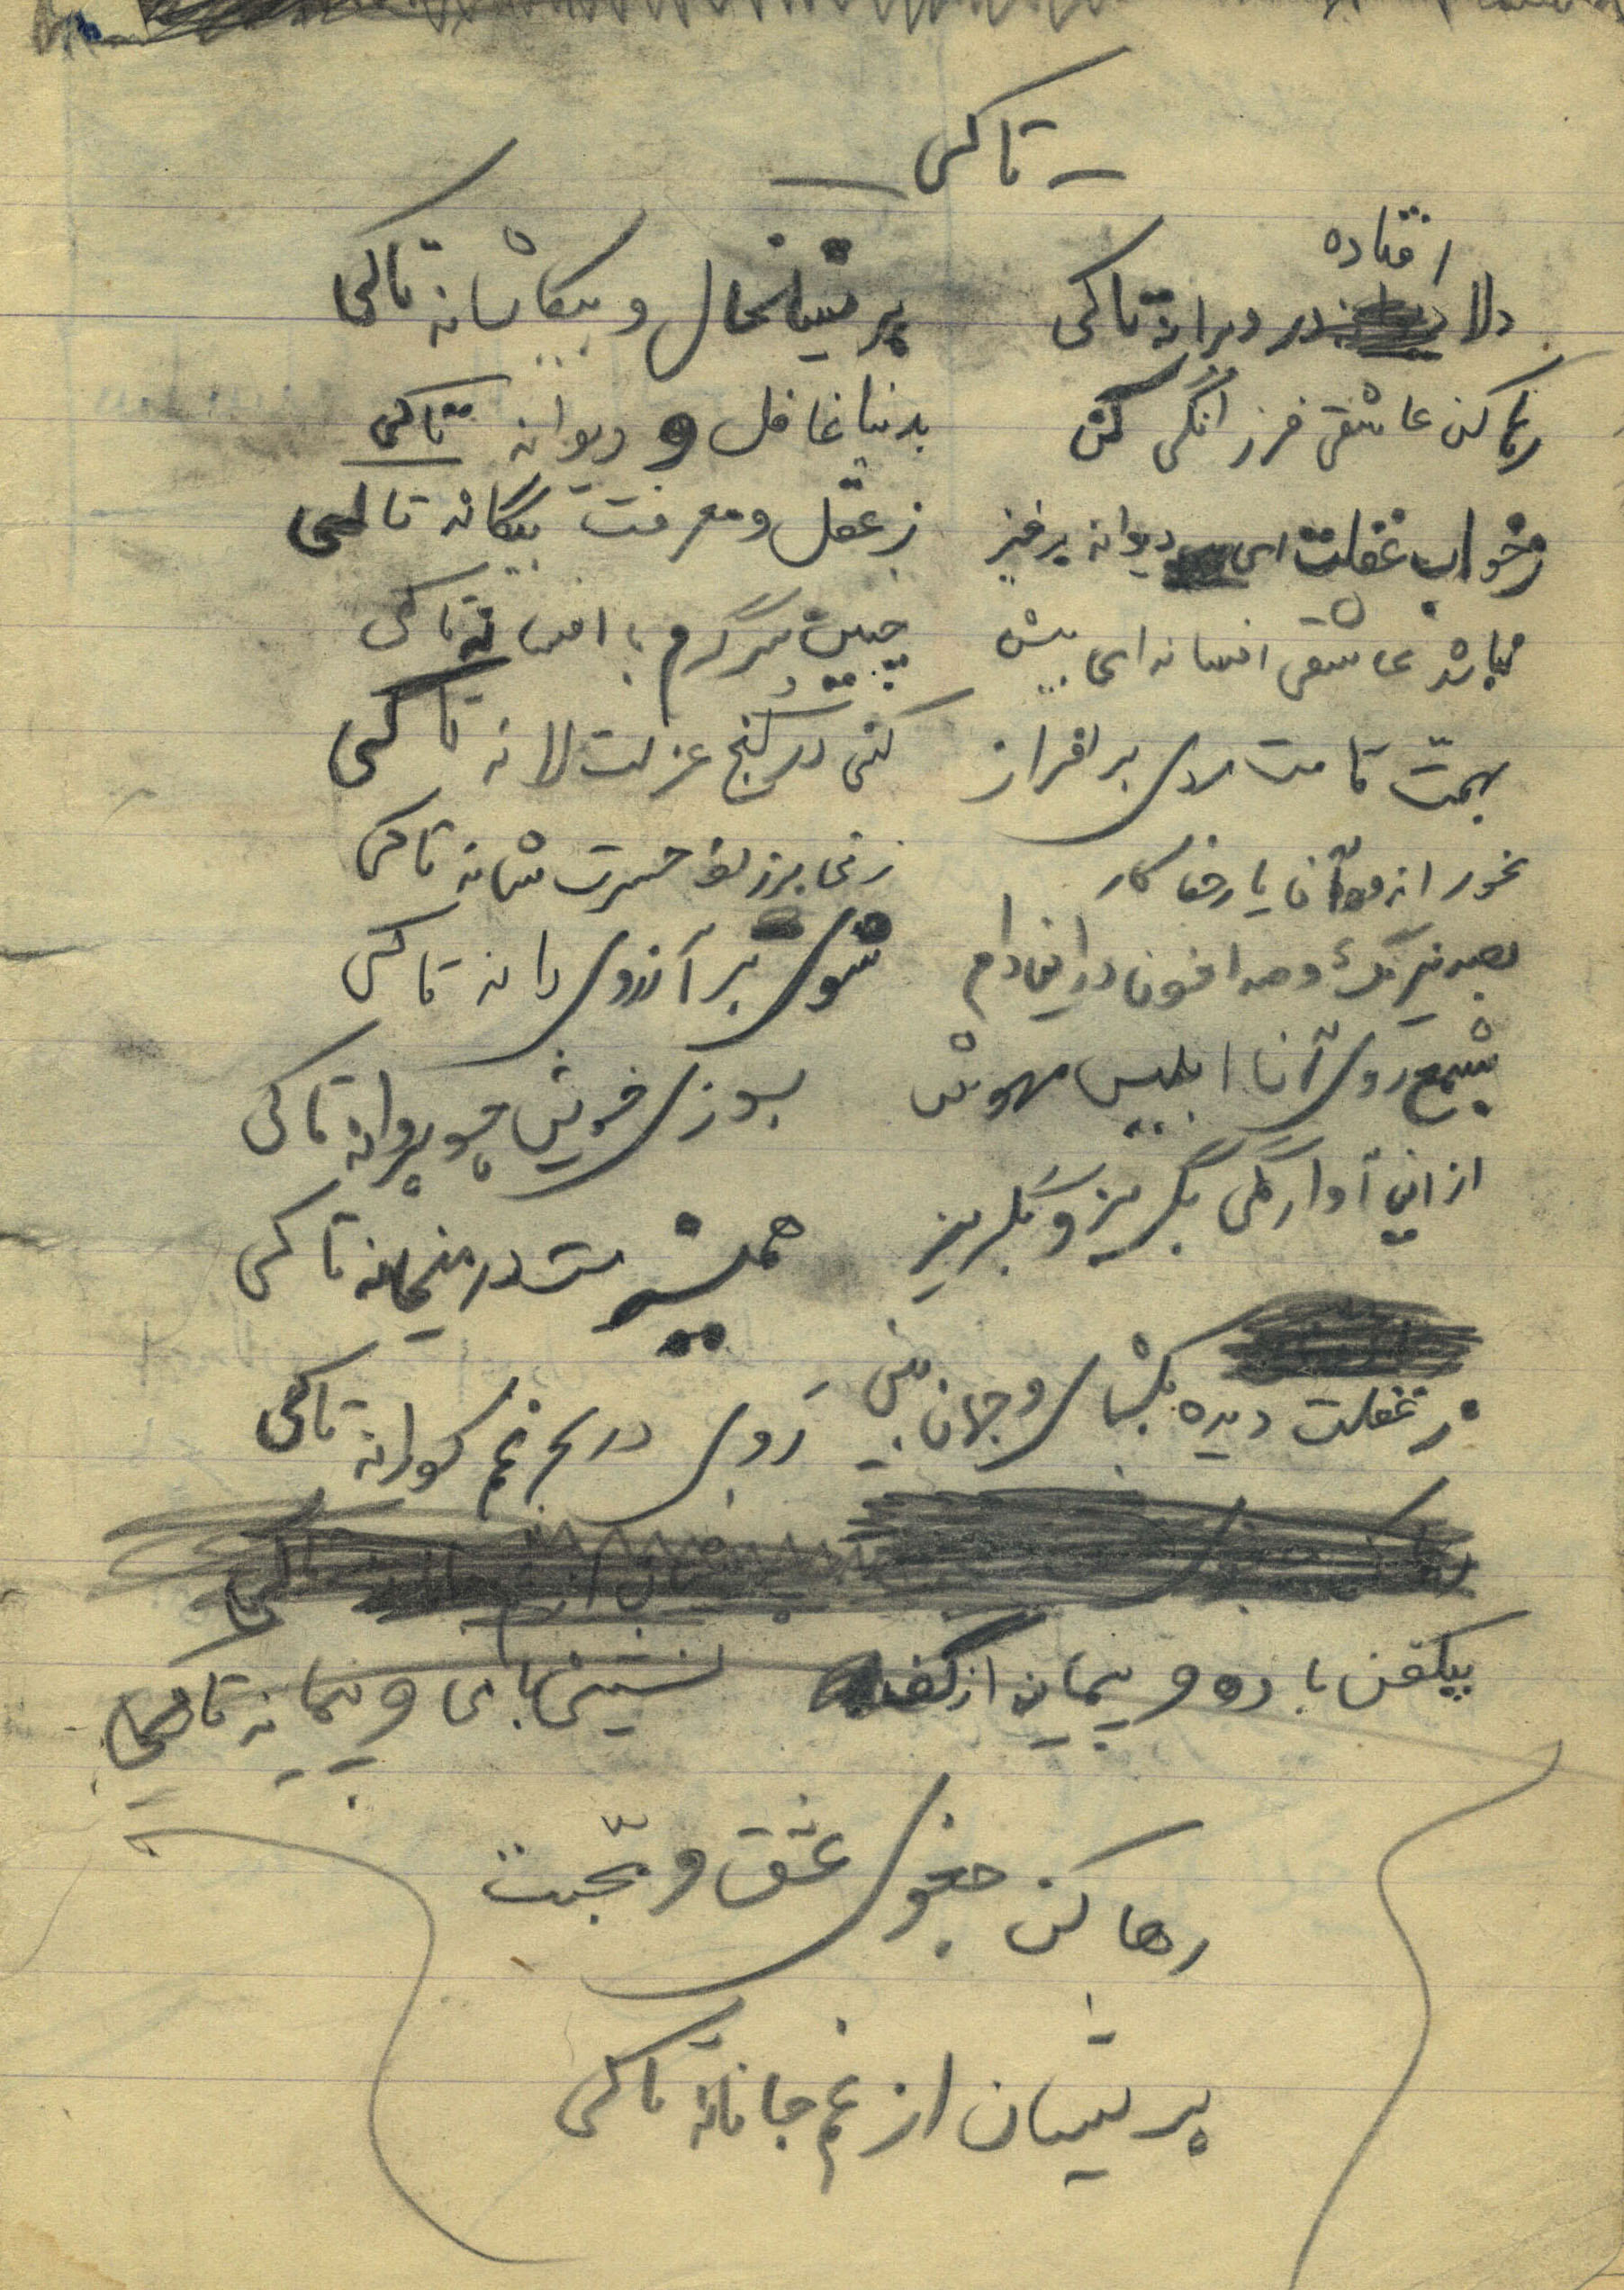 تا کی
افتاده
دلا در ویرانه تا کی پریشانحال و بیکاشانه تا کی
رها کن عاشقی فرزانگی کن بدنیا غافل و دیوانه تا کی
زخواب غفلت ای دیوانه برخیز ز عقل و معرفت بیگانه تا کی
نباشد عاشقی افسانه ای بیش چنین سرگرم با افسانه تا کی
بهمت قامت مردی برافراز کنی در کنج عزلت لانه تا کی
مخور اندوه آن یار جفا کار زنی بر زلف حسرت شانه تا کی
بصد نیرنگ و صد افسون در این دام شوی بر آرزوی دانه تا کی
بشمع روی آن ابلیس مهوش بسوزی خویش چو پروانه تا کی
از این آوارگی بگریز و بگریز همیشه مست در میخانه تا کی
ز غفلت دیده بگشای و جهان بین رَوی در بحر غم کورانه تا کی
بیفکن باده و پیمانه از کف نشینی با می و پیمانه تا کی
رها کن جغوی عشق و محبت
پریشان از غم جانانه تا کی